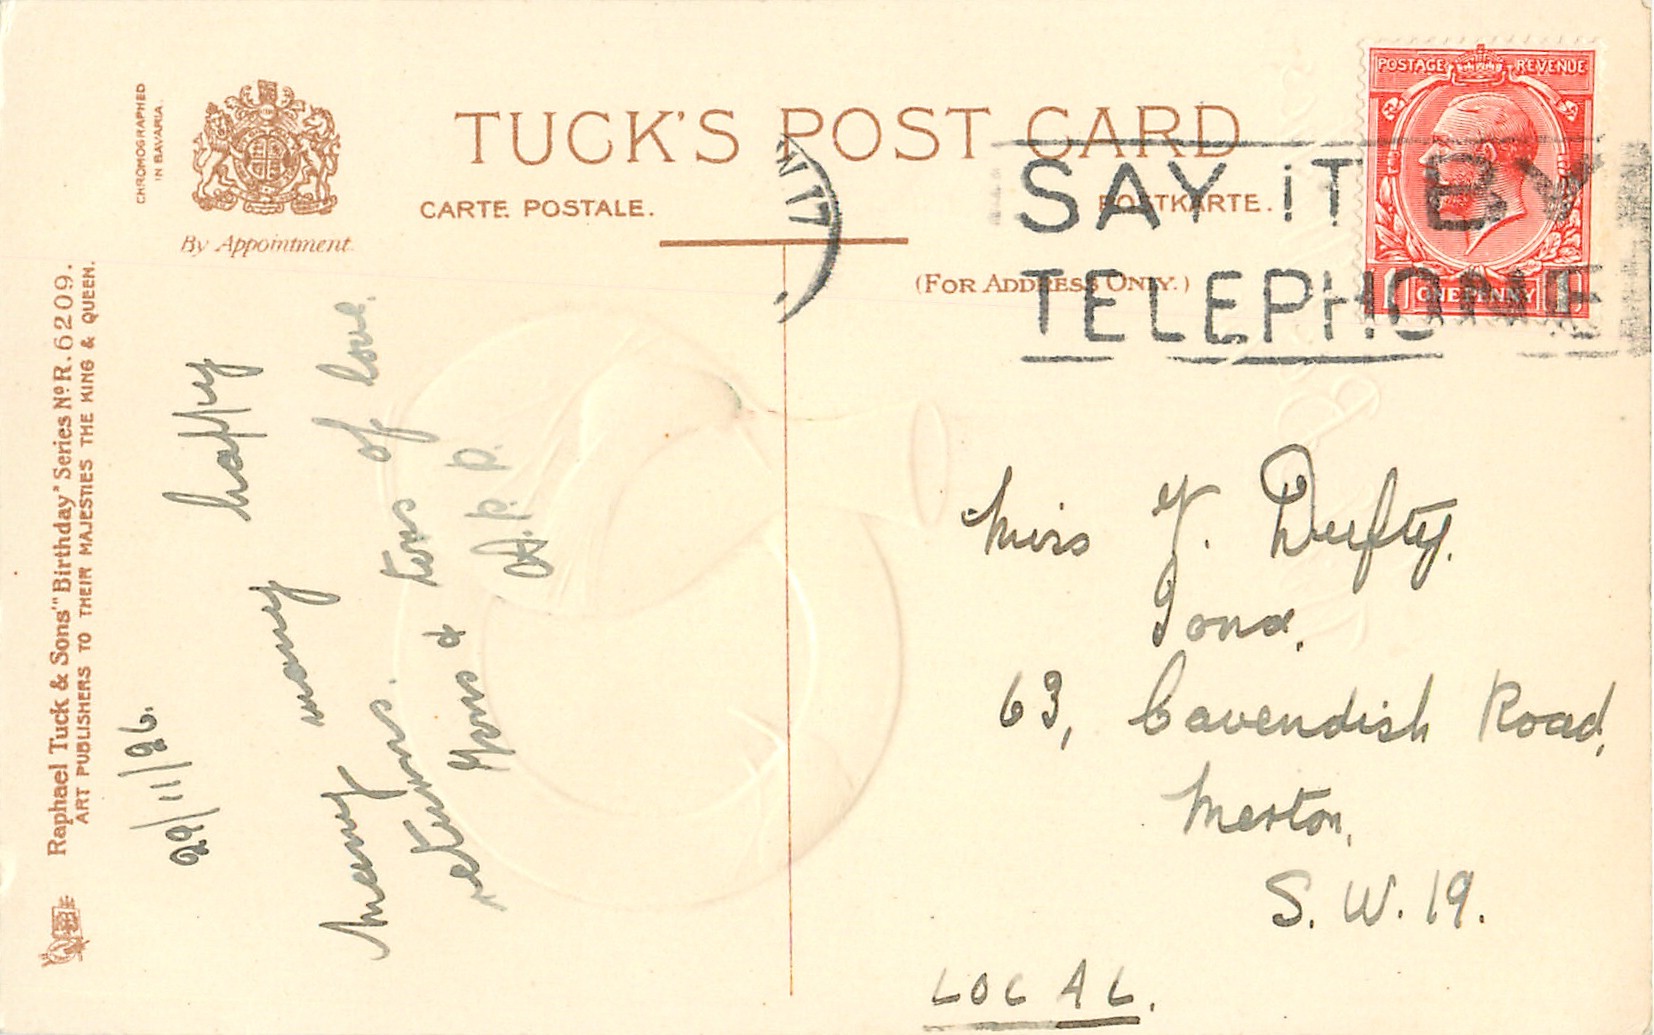 CHROMOGRAPHED
IN BAVARIA.
By Appointment.
TUCK'S POST CARD
CARTE POSTALE.
POSTKARTE.
(FOR ADDRESS ONLY.)
POSTAGE REVENUE
1 ONE PENNY 1
SAY IT BY
TELEPHONE
Raphael Tuck & Sons' "Birthday" Series No R. 6209.
ART PUBLISHERS TO THEIR MAJESTIES THE KING & QUEEN.
29/11/26.
Many many happy
returns. tons of love.
Mons &
A.P.P.
Miss Y. Dufty.
Iona,
63, Cavendish Road,
Merton,
S. W. 19.
LOCAL.